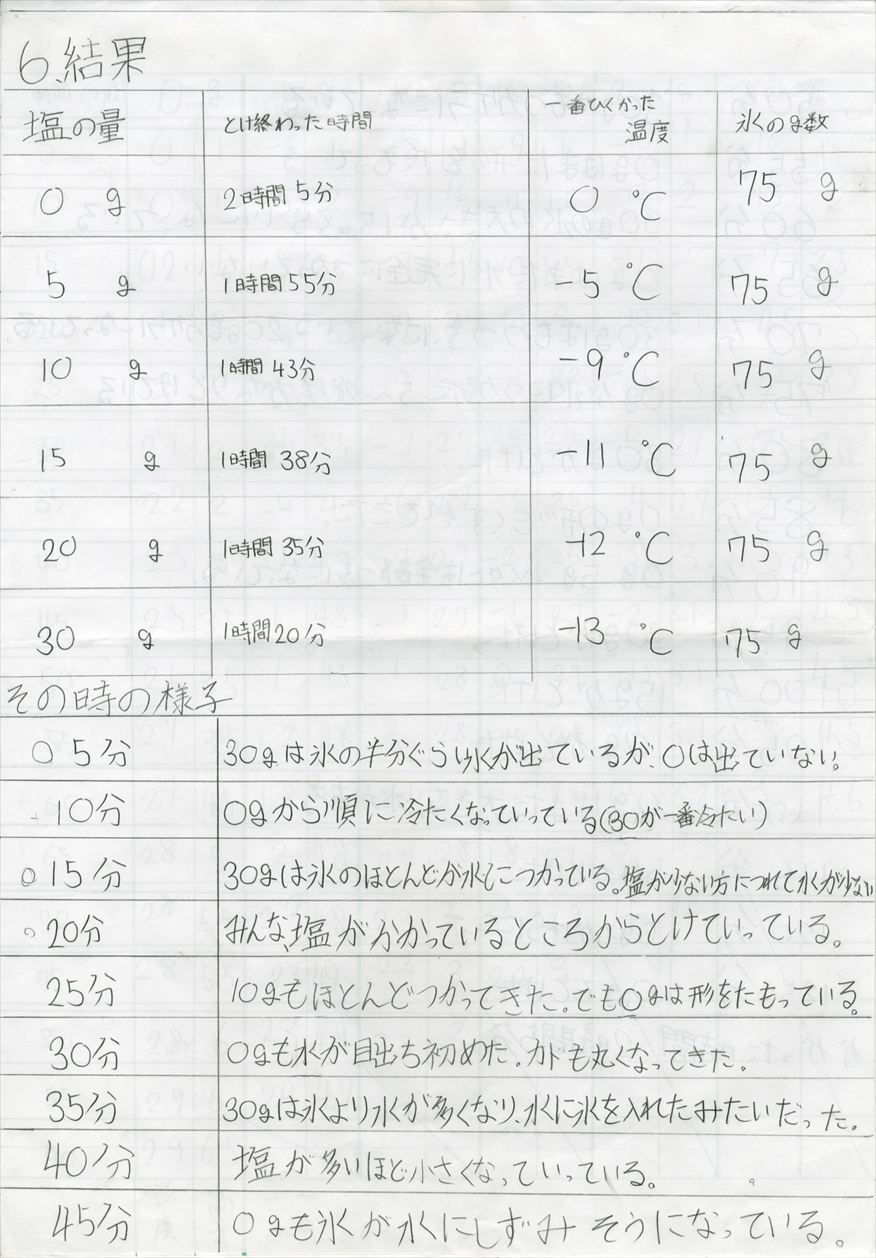 6.結果
塩の量 とけ終わった時間 一番ひくかった温度 氷のg数
0 g 2時間5分 0 ℃ 75 g
5 g 1時間55分 -5 ℃ 75 g
10 g 1時間43分 -9 ℃ 75 g
15 g 1時間38分 -11 ℃ 75 g
20 g 1時間35分 -12 ℃ 75 g
30 g 1時間20分 -13 ℃ 75 g
その時の様子
○5分 30gは氷の半分ぐらい水が出ているが、0は出ていない。
10分 0gから順に冷たくなっていっている(30が一番冷たい)
○15分 30gは氷のほとんどが水につかっている。塩が少ない方につれて水が少ない
○20分 みんな塩がかかっているところからとけていっている。
25分 10gもほとんどつかってきた。でも0gは形をたもっている。
30分 0gも水が目出ち初めた。カドも丸くなってきた。
35分 30gは氷より水が多くなり、水に氷を入れたみたいだった。
40分 塩が多いほど小さくなっていっている。
45分 0gも氷が水にしずみそうになっている。